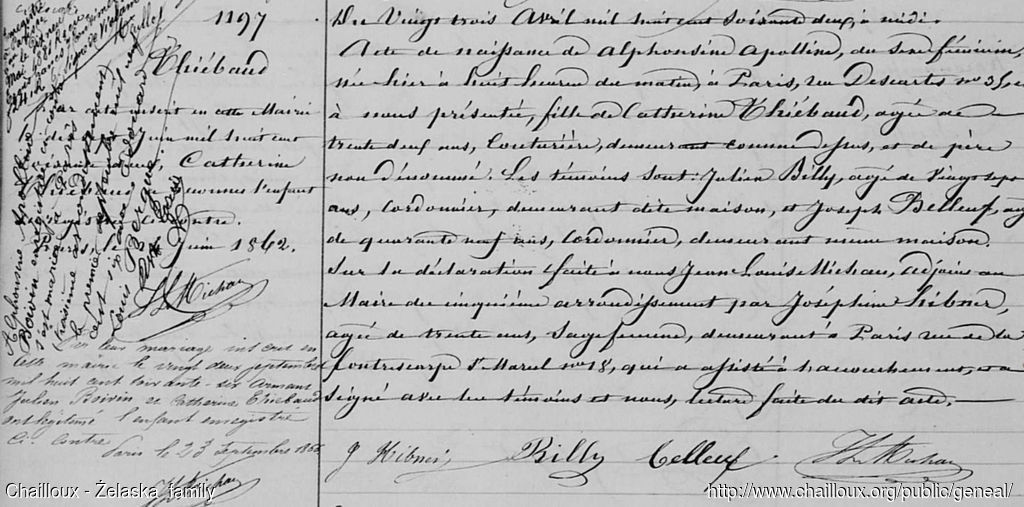 1197
Thiébaud
Par acte inscrit en cette Mairie
Juin mil huit cent
Catherine
Thiébaud reconnu l'enfant
contre.
Juin 1862.
Par leur mariage inscrit en
cette mairie le vingt deux septembre
mil huit cent soixante-six Armand
Julien Boivin et Catherine Thiébaud
ont légitimé l'enfant enregistré
ci contre
Paris le 23 Septembre 1866
Alphonsine Apolline
Boivin
s'est mariée à Paris
troisième arrondissement
le premier septembre mil
Louis Berger
Du Vingt trois Avril mil huit cent soixante deux, à midi.
Acte de naissance de Alphonsine Apolline, du sexe féminin,
née hier à huit heures du matin, à Paris, rue Descartes no 35, et
à nous présentée, fille de Catherine Thiébaud, agée de
trente deux ans, Couturière, demeurant comme dessus, et de père
non dénommé. Les témoins sont: Julien Billy, agé de vingt sept
ans, Cordonnier, demeurant dite maison, et Joseph Belleuf, agé
de quarante neuf ans, Cordonnier, demeurant même maison.
Sur la déclaration faite à nous Jean Louis Michau, adjoint au
Maire du cinquième arrondissement par Joséphine Hibner,
agée de trente ans, Sage femme, demeurant à Paris rue de la
Contrescarpe St Marcel no 18, qui a assisté à l'accouchement, et a
signé avec les témoins et nous, lecture faite du dit acte.
J Hibner Billy Belleuf JL Michau
Chailloux - Żelaska family
http://www.chailloux.org/public/geneal/